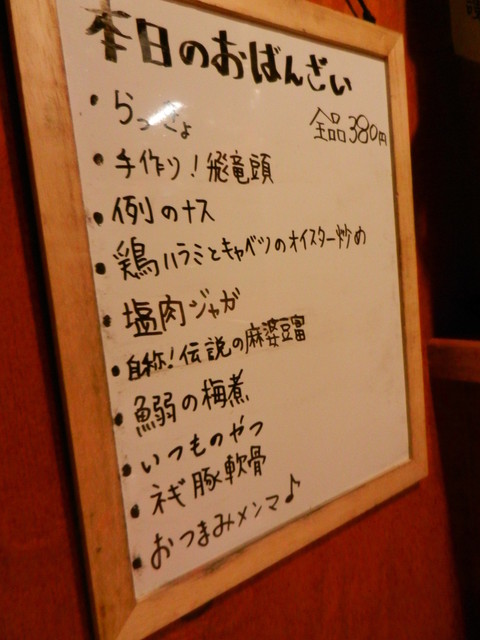 本日のおばんざい
全品380円
・らっきょ
・手作り!飛竜頭
・例のナス
・鶏ハラミとキャベツのオイスター炒め
・塩肉ジャガ
・自称!伝説の麻婆豆富
・鰯の梅煮
・いつものやつ
・ネギ豚軟骨
・おつまみメンマ♪